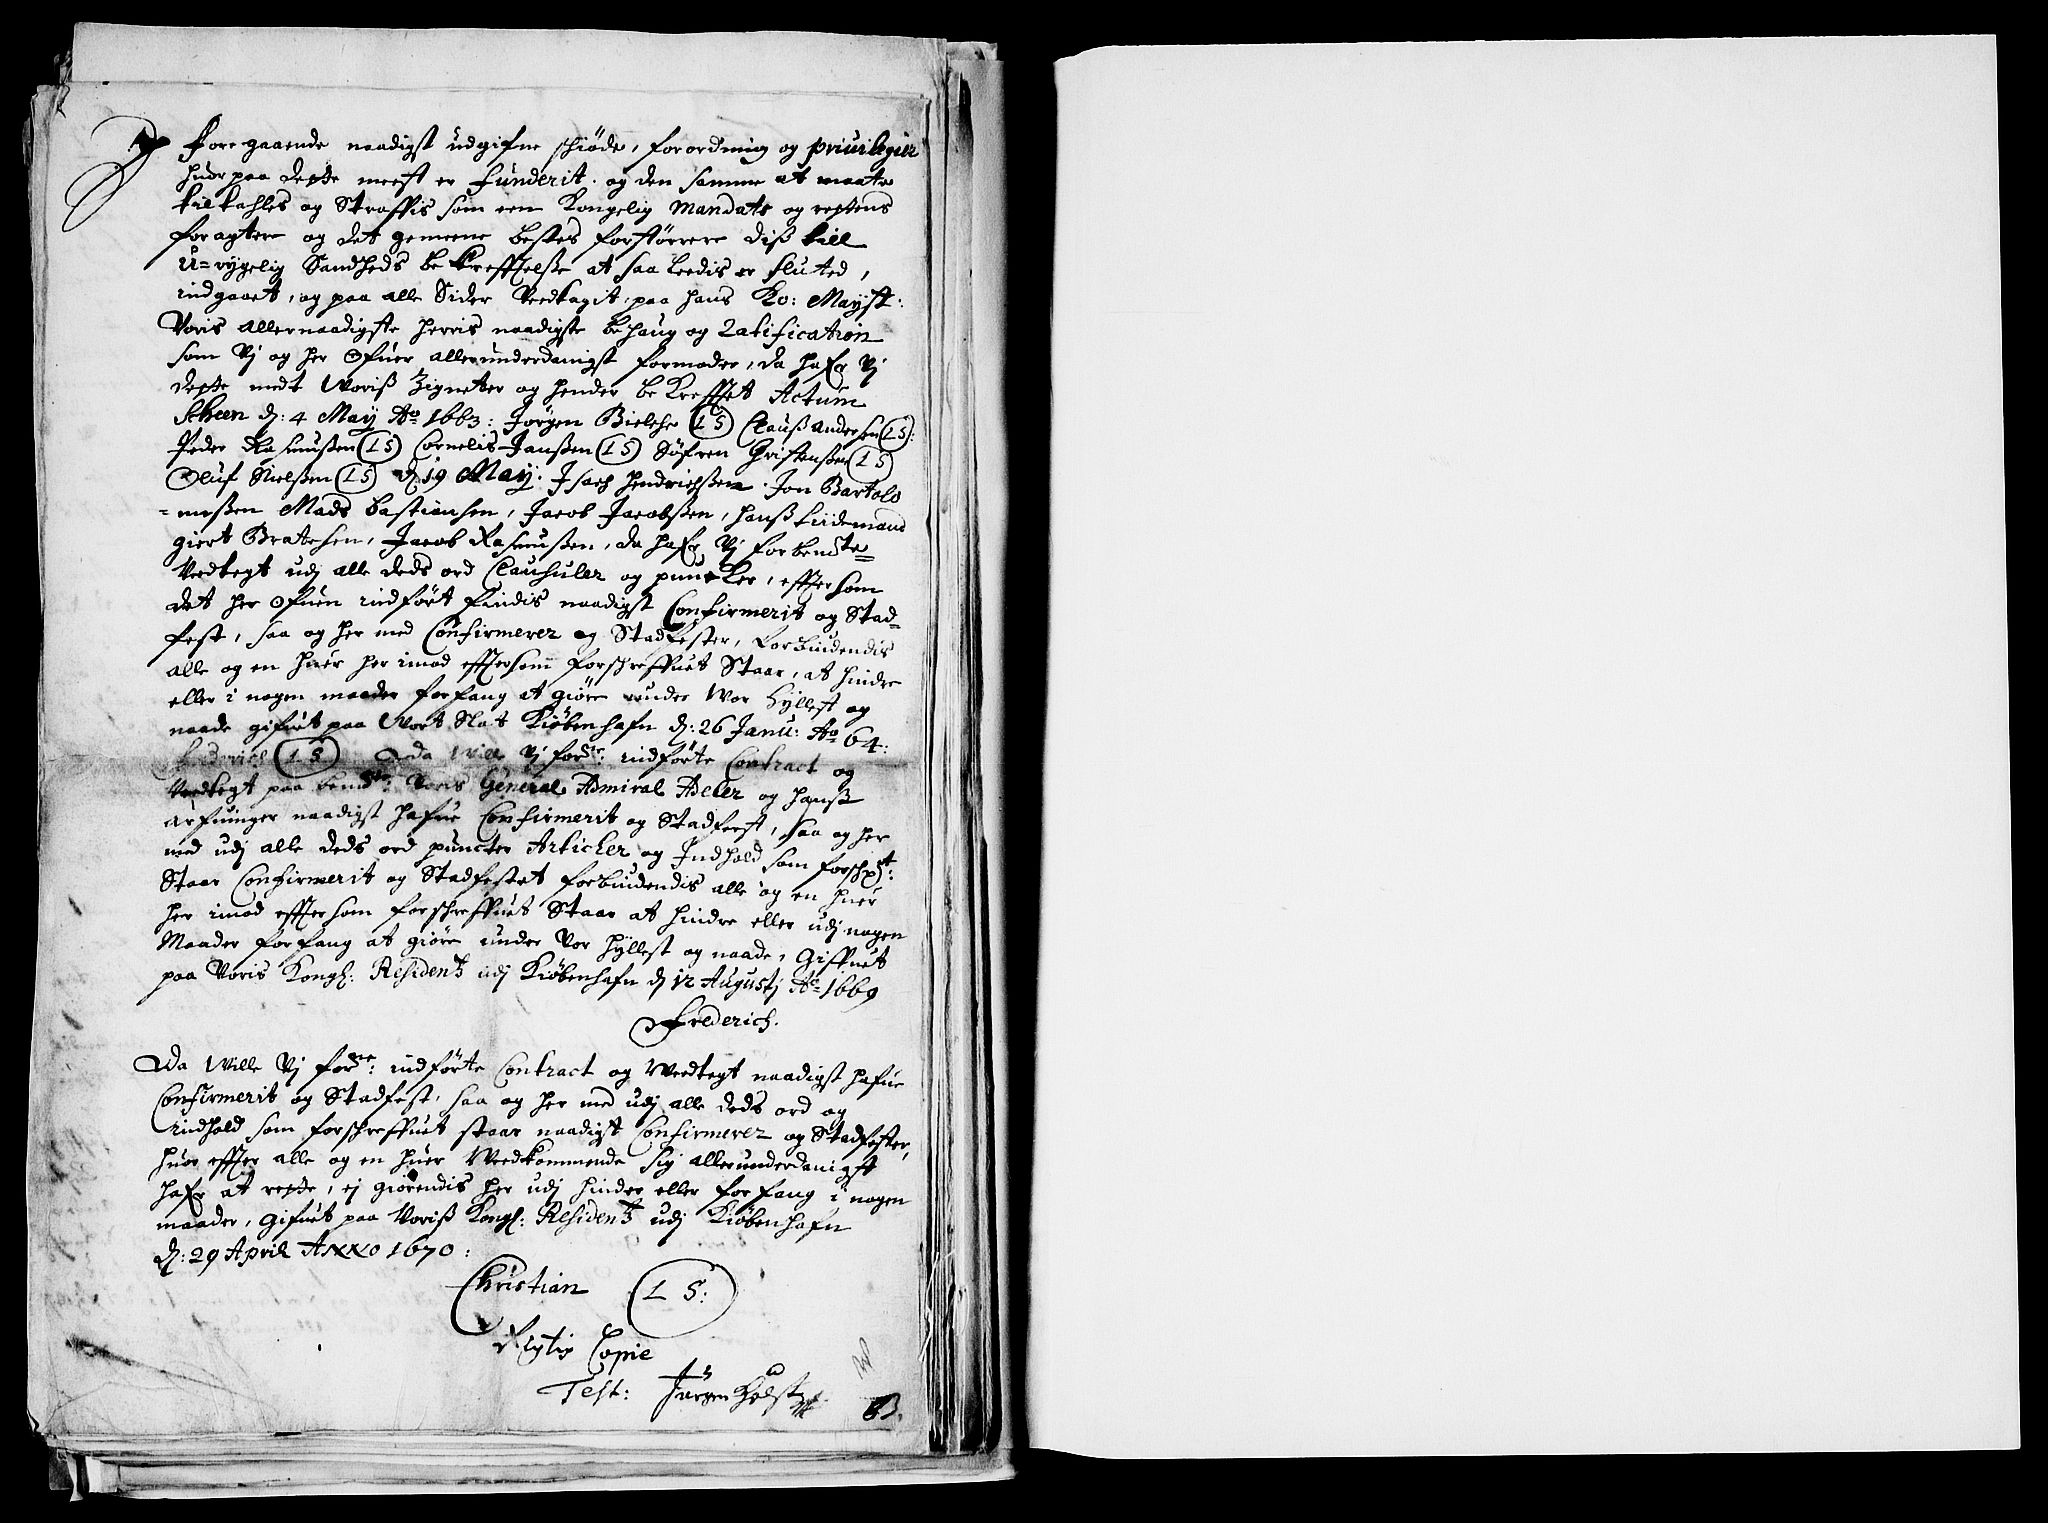 foregaaende naadigst udgifne schiöde, forordning og privilegier
huor paa dette meest er funderit. og den samme at maate
tiltahles og Straffis som een Kongelig Mandats og rettens
foragtere og det gemeene bestes forstörrere diß till
u=rygelig Sandheds bekreffttelße at saa leedis er sluted,
indgaaet, og paa alle Sider Vedtagit, paa hans Ko: Mayst:
Voris allernaadigste herris naadigste behaug og Ratification
som Vj og her Ofuer allerunderdanigst formoder, da hafr Vj
dette medt Woriß Zigneter og hender bekrefftet Actum
Scheen d: 4 May Ao 1663: Jörgen Bielche (L S) Clauß Andersen (L S):
Peder Rasmußen (L S) Cornelis Janßen (L S) Söfren Christenßen (L S)
Oluf Nielßen (L S) d 19 May. Isach Hendrichßen. Jon Bartolo
=meßen Mads Bastiansen, Jacob Jacobßen, Hanß Lindemand
giert Bratesen, Jacob Rasmußen, da hafr Vj forbemte=
Vedtegt udj alle deds ord Clausuler og puncter, effter som
det her Ofuen indfört findis naadigst Confirmerit og Stad=
fest, saa og her med Confirmerer og Stadfester, Forbiudendis
alle og en huer her imod efftersom forschreffuet Staar, at hindre
eller i nogen maader forfang at giöre under Wor Hyllest og
naade gifuet paa Wort Slot Kiöbenhafn d: 26 Janu: Ao 64:
Frederich (L S) Da Wille Vj forne: indförte Contract og
Vedtegt paa bemte: Voris General Admiral Adeler og hanß
arfuinger naadigst hafue Confirmerit og Stadfeest, saa og her
med udj alle deds ord puncter Articler og Indhold som forschrt:
Staar Confirmerit og Stadfestet forbiudendis alle og en huer
her imod effter som forschreffuet Staar at hindre eller udj nogen
Maader forfang at giöre under Vor Hyllest og naade, Giffuet
paa Voris Kongl: Residentz udj Kiöbenhafn d 12 Augustj Ao 1669
Frederich.
Da Wille Vj forne: indförte Contract og Wedtegt naadigst hafue
Confirmerit og Stadfest, saa og her med udj alle deds ord og
indhold som forschreffuet staar naadigst Confirmerer og Stadfester,
huor effter alle og en huer Vedkommende sig allerunderdanigst
hafr at rette, ej giörendis her udj hinder eller forfang i nogen
maader, Gifuet paa Voriß Kongl: Residentz udj Kiöbenhafn
d: 29 April ANNO 1670:
Christian (L S:)
Rigtig Copie
Test: Jörgen Holst
B.